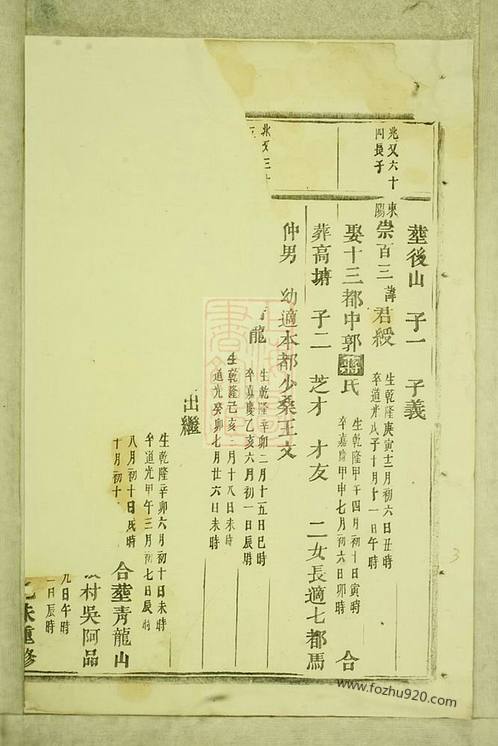 塟後山 子一 子義
兆又六十四長子 東陽
崇百三 諱君綬 生乾隆庚寅十二月初六日丑時
卒道光戊子十月十一日午時
娶十三都中郭蔣氏 生乾隆甲午四月初十日寅時
卒嘉慶甲申七月初六日卯時 合
葬高塘 子二 芝才 才友 二女長適七都馬
仲男 幼適本都少桑王文
兆又三十
龍 生乾隆辛卯二月十五日巳時
卒嘉慶乙亥六月初一日辰時
生乾隆己亥 月十八日未時
道光癸卯七月廿六日未時
出繼
生乾隆辛卯六月初十日未時
卒道光甲午三月初七日辰時
八月初十日辰時 合塟青龍山
十月初十
村吳阿品
九日午時
一日辰時
乙未重修
www.fozhu920.com